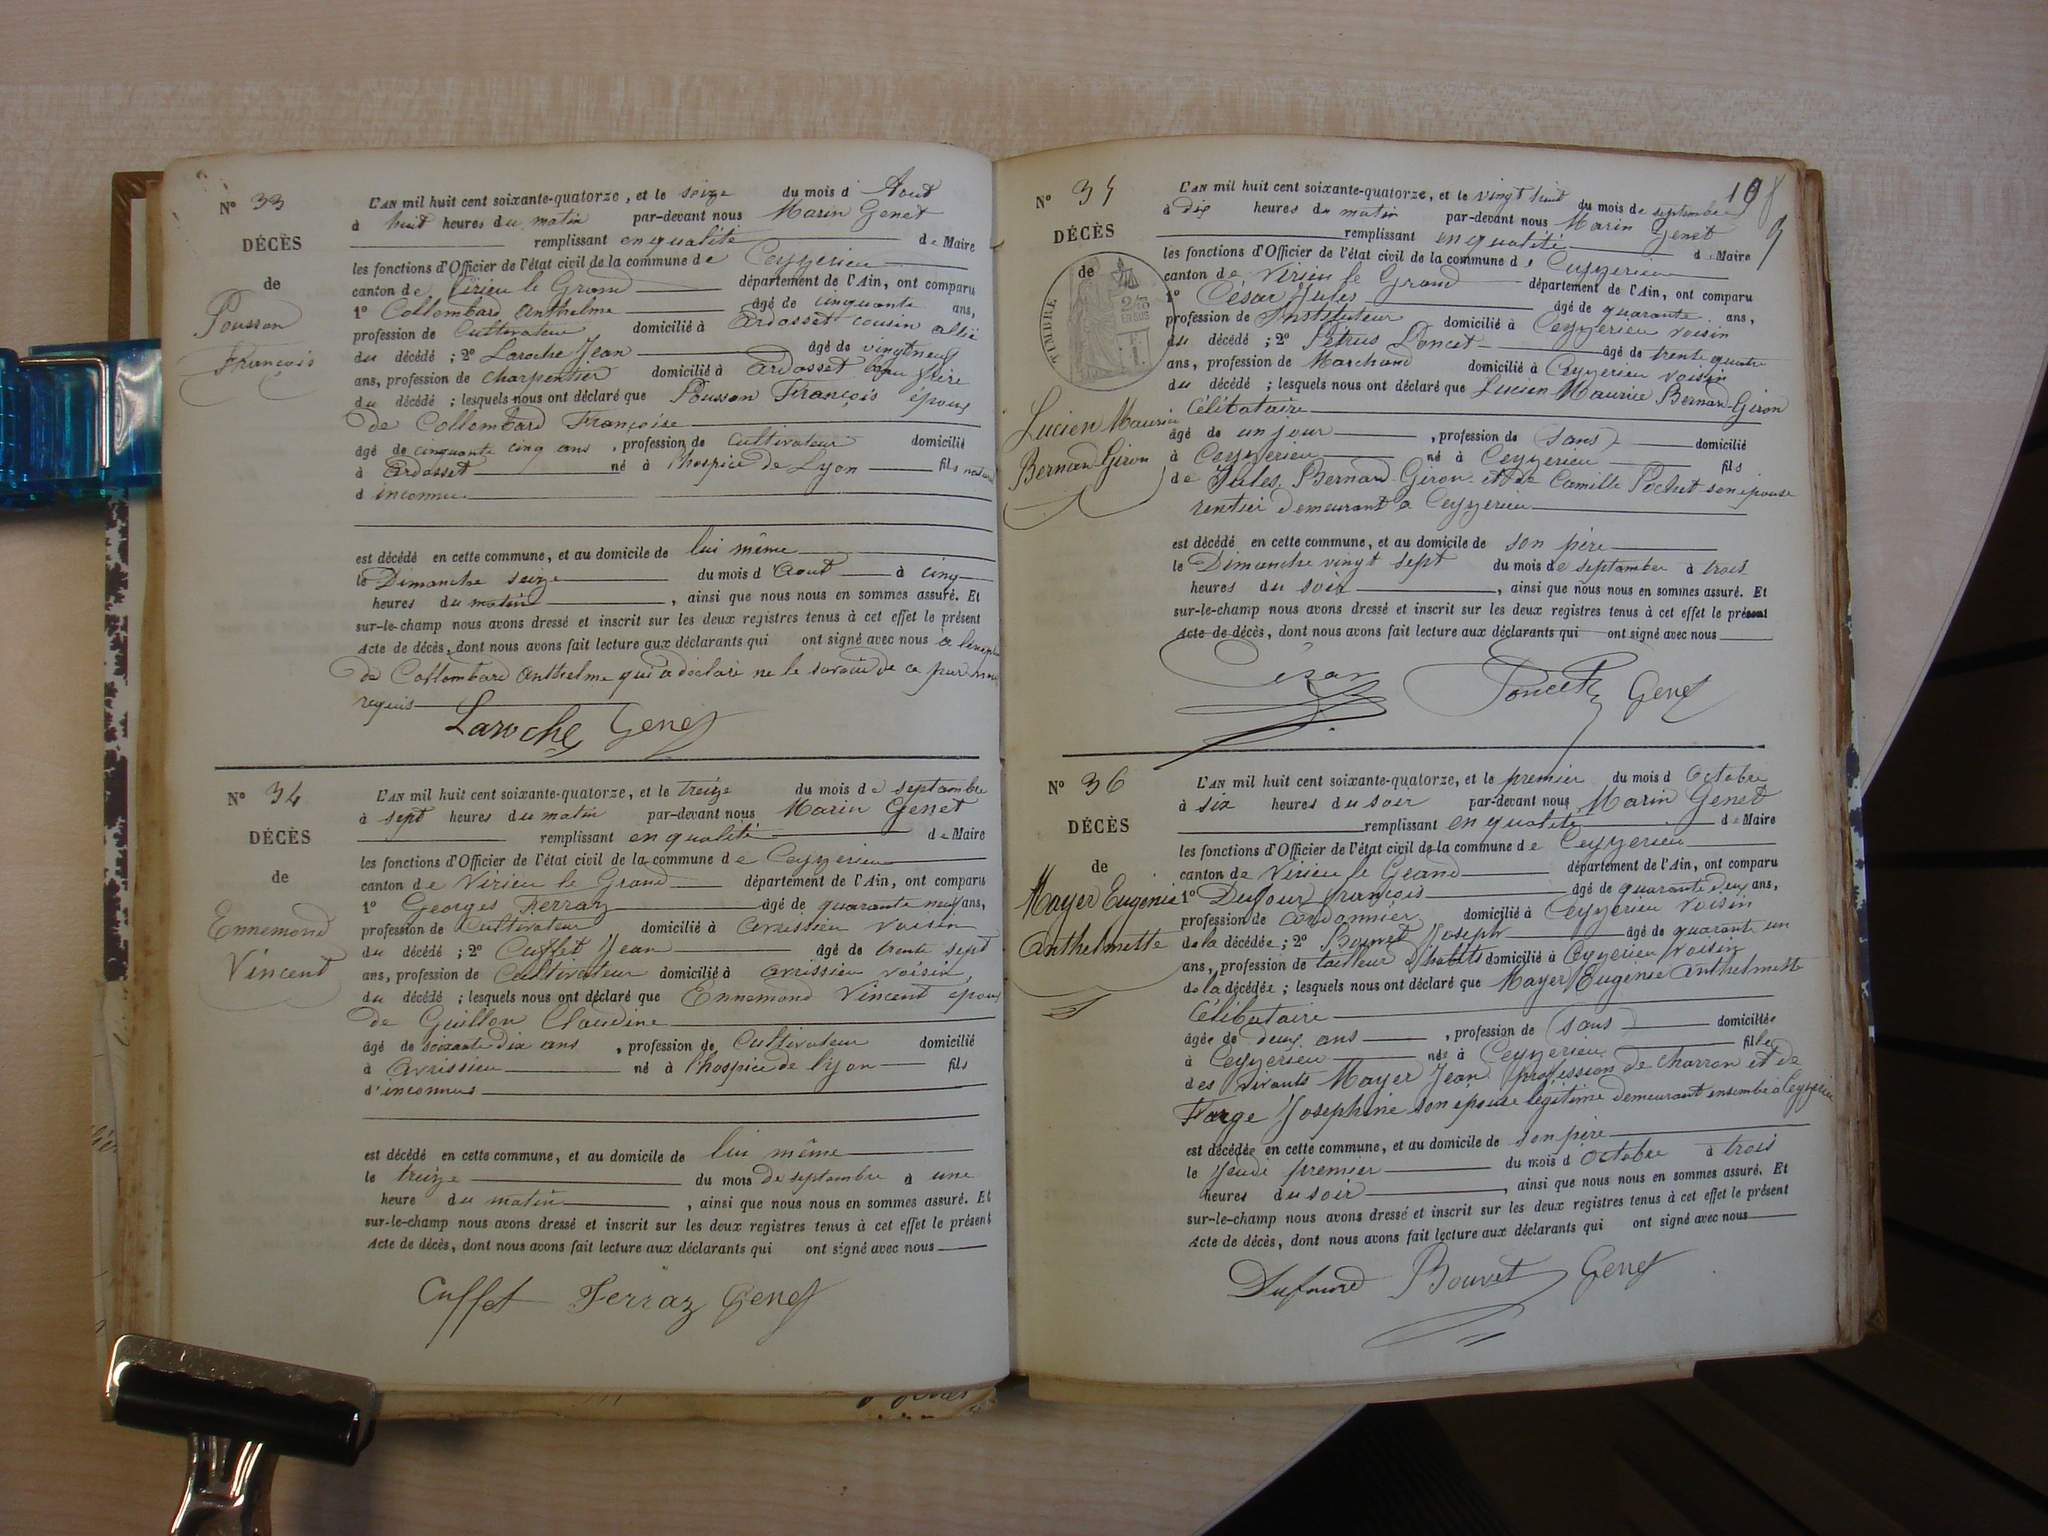 N° 33
DÉCÈS
de
Pousson
François
L'AN mil huit cent soixante-quatorze, et le seize du mois d'Aout
à huit heures du matin par-devant nous Marin Genet
remplissant en qualité de Maire
les fonctions d'Officier de l'état civil de la commune de Ceyzerieu
canton de Virieu le Grand département de l'Ain, ont comparu
1° Collombard Anthelme âgé de cinquante ans,
profession de Cultivateur domicilié à Ardosset cousin allié
du décédé ; 2° Laroche Jean âgé de vingt neuf
ans, profession de charpentier domicilié à Ardosset beau frère
du décédé ; lesquels nous ont déclaré que Pousson François époux
de Collombard Françoise
âgé de cinquante cinq ans, profession de cultivateur domicilié
à Ardosset né à l'hospice de Lyon fils naturel
d inconnu
est décédé en cette commune, et au domicile de lui même
le Dimanche seize du mois d'Aout à cinq
heures du matin, ainsi que nous nous en sommes assuré. Et
sur-le-champ nous avons dressé et inscrit sur les deux registres tenus à cet effet le présent
acte de décès, dont nous avons fait lecture aux déclarants qui ont signé avec nous à
de Collombard Anthelme qui a déclaré ne le savoir de ce par nous
requis
Laroche Genet
N° 34
DÉCÈS
de
Ennemond
Vincent
L'AN mil huit cent soixante-quatorze, et le treize du mois de septembre
à sept heures du matin par-devant nous Marin Genet
remplissant en qualité de Maire
les fonctions d'Officier de l'état civil de la commune de Ceyzerieu
canton de Virieu le Grand département de l'Ain, ont comparu
1° Georges Ferraz âgé de quarante neuf ans,
profession de Cultivateur domicilié à Avrissieu voisin
du décédé ; 2° Cuffet Jean âgé de trente sept
ans, profession de Cultivateur domicilié à Avrissieu voisin
du décédé ; lesquels nous ont déclaré que Ennemond Vincent époux
de Guillon Claudine
âgé de soixante dix ans, profession de Cultivateur domicilié
à Avrissieu né à l'hospice de lyon fils
d'inconnus
est décédé en cette commune, et au domicile de lui même
le treize du mois de septembre à une
heure du matin, ainsi que nous nous en sommes assuré. Et
sur-le-champ nous avons dressé et inscrit sur les deux registres tenus à cet effet le présent
acte de décès, dont nous avons fait lecture aux déclarants qui ont signé avec nous
Cuffet Ferraz Genet
N° 35
DÉCÈS
de
TIMBRE
Lucien Maurice
Bernard-Giron
L'AN mil huit cent soixante-quatorze, et le vingt huit du mois de septembre
à dix heures du matin par-devant nous Marin Genet
remplissant en qualité de Maire
les fonctions d'Officier de l'état civil de la commune de Ceyzerieu
canton de Virieu le Grand département de l'Ain, ont comparu
1° César Jules âgé de quarante ans,
profession de Instituteur domicilié à Ceyzerieu voisin
du décédé ; 2° Pétrus Poncet âgé de trente quatre
ans, profession de Marchand domicilié à Ceyzerieu voisin
du décédé ; lesquels nous ont déclaré que Lucien Maurice Bernard-Giron
Célibataire
âgé de un jour, profession de (sans) domicilié
à Ceyzerieu né à Ceyzerieu fils
de Jules Bernard-Giron et de Camille Pochet son épouse
rentier demeurant à Ceyzerieu
est décédé en cette commune, et au domicile de son père
le Dimanche vingt sept du mois de septembre à trois
heures du soir, ainsi que nous nous en sommes assuré. Et
sur-le-champ nous avons dressé et inscrit sur les deux registres tenus à cet effet le présent
acte de décès, dont nous avons fait lecture aux déclarants qui ont signé avec nous
César Poncet Genet
N° 36
DÉCÈS
de
Mayer Eugénie
Anthelmette
L'AN mil huit cent soixante-quatorze, et le premier du mois d Octobre
à six heures du soir par-devant nous Marin Genet
remplissant en qualité de Maire
les fonctions d'Officier de l'état civil de la commune de Ceyzerieu
canton de Virieu le Grand département de l'Ain, ont comparu
1° Dufour françois âgé de quarante deux ans,
profession de Cordonnier domicilié à Ceyzerieu voisin
de la décédée ; 2° Bouvet Joseph âgé de quarante un
ans, profession de tailleur d'habits domicilié à Ceyzerieu voisin
de la décédée ; lesquels nous ont déclaré que Mayer Eugénie Anthelmette
Célibataire
âgée de deux ans, profession de (sans) domiciliée
à Ceyzerieu née à Ceyzerieu fille
des vivants Mayer Jean profession de charron et de
Farge Josephine son epouse légitime demeurant ensemble a Ceyzerieu
est décédée en cette commune, et au domicile de son père
le Jeudi premier du mois d Octobre à trois
heures du soir, ainsi que nous nous en sommes assuré. Et
sur-le-champ nous avons dressé et inscrit sur les deux registres tenus à cet effet le présent
acte de décès, dont nous avons fait lecture aux déclarants qui ont signé avec nous
Dufourd Bouvet Genet